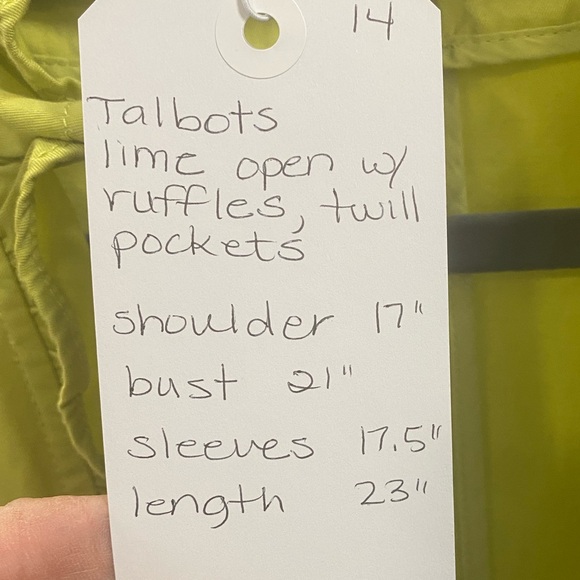 14
Talbots
lime open w/
ruffles, twill
pockets
shoulder 17"
bust 21"
sleeves 17.5"
length 23"